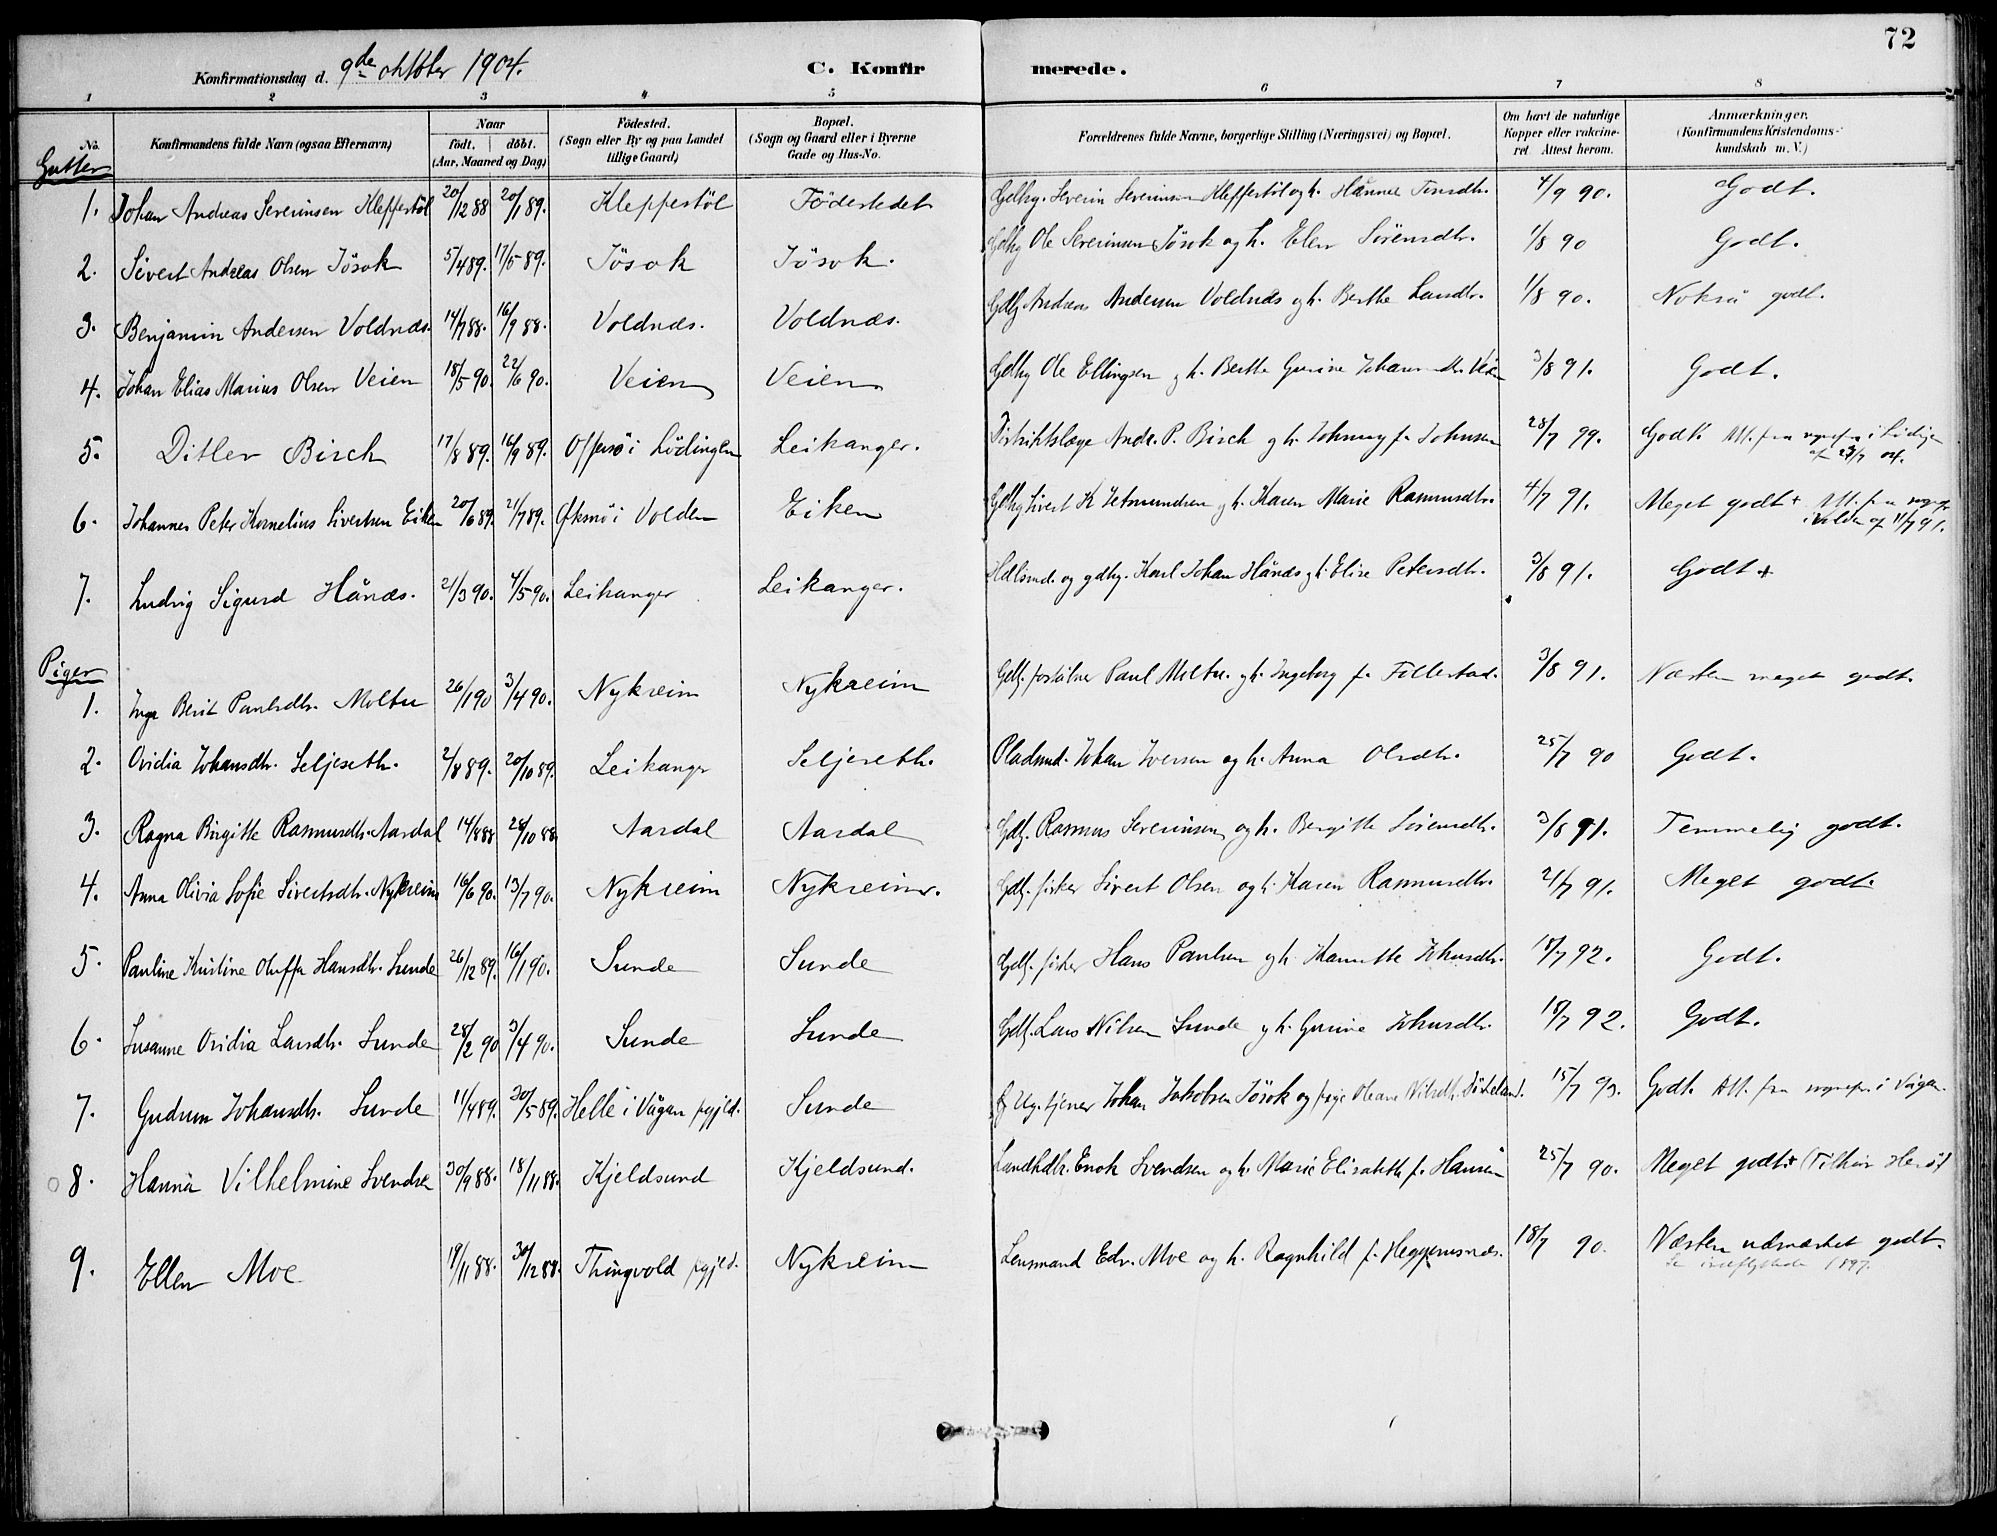 72
Konfirmationsdag d. 9de oktober 1904. C. Konfirmerede.
1 2 3 4 5 6 7 8
No. Konfirmandens fulde Navn (ogsaa Efternavn) Naar født. døbt. (Aar, Maaned og Dag) Fødested. (Sogn eller By og paa Landet tillige Gaard) Bopæl. (Sogn og Gaard eller i Byerne Gade og Hus-No. Forældrenes fulde Navne, borgerlige Stilling (Næringsvei) og Bopæl. Om havt de naturlige Kopper eller vakcineret. Attest herom. Anmærkninger. (Konfirmandens Kristendomskundskab m. V.)
Gutter
1. Johan Andreas Severinsen Kleppestöl 20/12 88 20/1 89. Kleppestöl Födestedet Gdbg. Severin Severinsen Kleppestöl og h. Hanna 4/9 90. Godt.
2. Sivert Andreas Olsen Jösok 5/4 89. 17/5 89. Jösok Jösok. Gdbg Ole Severinsen Jösok og h. Elen Sörensdtr. 1/8 90 Godt.
3. Benjamin Andersen Voldnæs. 14/7 88. 16/9 88. Voldnæs. Voldnæs. Gdbg. Andreas Andersen Voldnæs og h. Berthe Larsdtr. 1/8 90. Nokså godt.
4. Johan Elias Marius Olsen Veien 18/5 90. 22/6 90. Veien Veien Gdbg Ole Ellingsen og h. Berthe Gurine 3/8 91. Godt.
5. Ditlev Birch 17/8 89. 16/9 89. Offersö i Lödingen Leikanger. Distriktslæge Andr. P. Birch og h. Johnny f. Johnsen 28/7 99. Godt. Att. fra sognepr. i Lödingen af 23/7 04.
6. Johannes Peter Kornelius Sivertsen Eiken 20/6 89. 21/7 89. i Volden Eiken Gdbg Sivert K. Setmundsen og h. Karen Marie Rasmusdtr. 4/7 91. Meget godt + Att. fra sognepr. i Volden af 11/7 91.
7. Ludvig Sigurd Hånæs. 21/3 90. 4/5 90. Leikanger Leikanger. Hdlsmd. og gdbg. Karl Johan Hånæs og h. Elise Petersdtr. 3/8 91. Godt +
Piger
1. Inga Berit Paulsdtr. Moltu 26/1 90 3/4 90. Nykreim Nykreim Gdbg. Paul Moltu og h. Ingeborg f. Fillestad. 3/8 91. Næsten meget godt.
2. Ovidia Johansdtr. Seljeseth. 2/8 89. 20/10 89. Leikanger Seljeseth. Pladsmd. Johan Iversen og h. Anna Olsdtr. 25/7 90 Godt.
3. Ragna Birgitte Rasmusdtr. Aardal 14/8 88 28/10 88. Aardal Aardal Gdbg. Rasmus Severinsen og h. Bergitte Sörensdtr. 3/8 91. Temmelig godt.
4. Anna Olivia Sofie Sivertsdtr. Nykreim 16/6 90. 13/7 90. Nykreim Nykreim. Gdbg. fisker Sivert Olsen og h. Karen Rasmusdtr. 21/7 91. Meget godt.
5. Pauline Kristine Oluffa Hansdtr. Sunde 26/12 89. 16/1 90. Sunde Sunde Gdbg. fisker Hans Paulsen og h. Johnsdtr. 18/7 92. Godt.
6. Susanne Ovidia Larsdtr. Sunde 28/2 90 3/4 90. Sunde Sunde Gdbg. Lars Nilsen Sunde og h. Gurine Johnsdtr. 18/7 92. Godt.
7. Gudrun Johansdtr. Sunde 11/4 89. 30/5 89. Helle i Vågan prgjld. Sunde Ug. tjener Johan Jakobsen Jösok og pige Oleane Nilsdtr. 15/7 93. Godt. Att. fra sognepr. i Vågan.
8. Hanna Vilhelmine Svendsen 30/9 88. 18/11 88. Kjeldsund Kjeldsund. Landhdlr. Enok Svendsen og h. Marie Elisabeth f. Hansen 25/7 90. Meget godt + (Tilhör Herö)
9. Ellen Moe 19/11 88. 30/12 88. Thingvold prgjld. Nykreim Lensmand Edv. Moe og h. Ragnhild f. Heggemsnæs. 18/7 90. Næsten udmærket godt. Se indflyttede 1897.